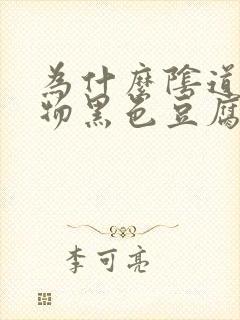 為什麼陰道
物黑色豆腐
李可亮